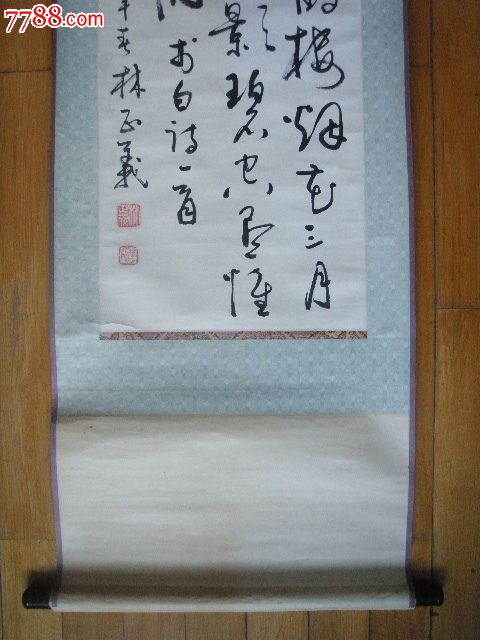 7788.com
楼烟花三月
景碧空尽惟
李白诗一首
春林正義